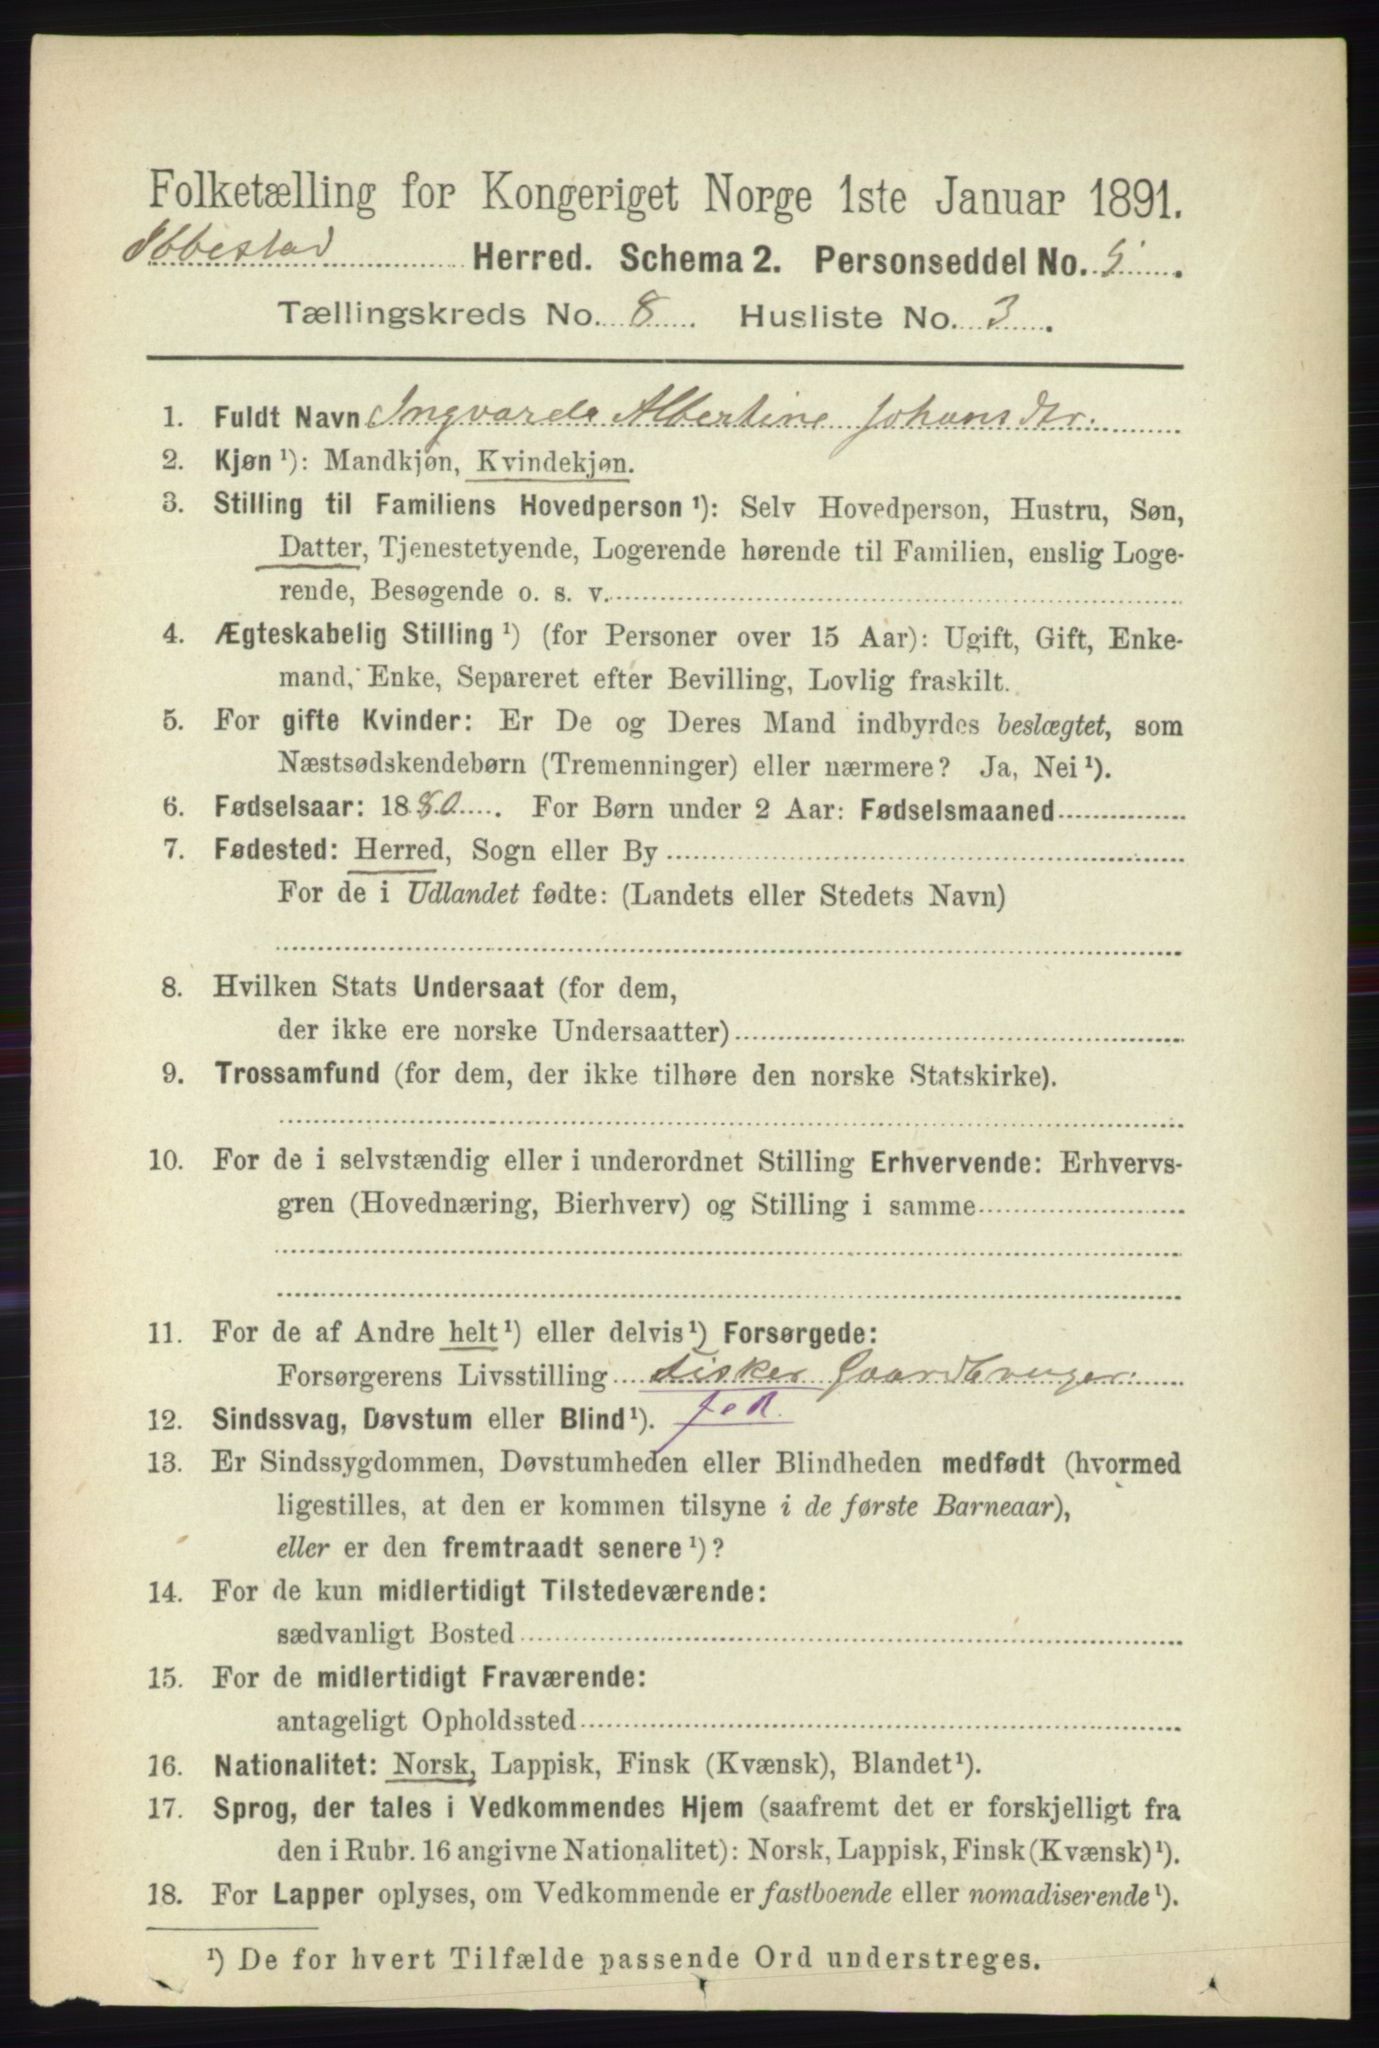 Folketælling for Kongeriget Norge 1ste Januar 1891.
Ibbestad Herred. Schema 2. Personseddel No. 5.
Tællingskreds No. 8. Husliste No. 3.
1. Fuldt Navn Ingvarda Albertine Johansdtr.
2. Kjøn ¹): Mandkjøn, Kvindekjøn.
3. Stilling til Familiens Hovedperson ¹): Selv Hovedperson, Hustru, Søn,
Datter, Tjenestetyende, Logerende hørende til Familien, enslig Loge-
rende, Besøgende o. s. v.
4. Ægteskabelig Stilling ¹) (for Personer over 15 Aar): Ugift, Gift, Enke-
mand, Enke, Separeret efter Bevilling, Lovlig fraskilt.
5. For gifte Kvinder: Er De og Deres Mand indbyrdes beslægtet, som
Næstsødskendebørn (Tremenninger) eller nærmere? Ja, Nei ¹).
6. Fødselsaar: 1880. For Børn under 2 Aar: Fødselsmaaned
7. Fødested: Herred, Sogn eller By
For de i Udlandet fødte: (Landets eller Stedets Navn)
8. Hvilken Stats Undersaat (for dem,
der ikke ere norske Undersaatter)
9. Trossamfund (for dem, der ikke tilhøre den norske Statskirke).
10. For de i selvstændig eller i underordnet Stilling Erhvervende: Erhvervs-
gren (Hovednæring, Bierhverv) og Stilling i samme
11. For de af Andre helt ¹) eller delvis ¹) Forsørgede:
Forsørgerens Livsstilling Fisker Gaardbruger.
12. Sindssvag, Døvstum eller Blind ¹).
13. Er Sindssygdommen, Døvstumheden eller Blindheden medfødt (hvormed
ligestilles, at den er kommen tilsyne i de første Barneaar),
eller er den fremtraadt senere ¹)?
14. For de kun midlertidigt Tilstedeværende:
sædvanligt Bosted
15. For de midlertidigt Fraværende:
antageligt Opholdssted
16. Nationalitet: Norsk, Lappisk, Finsk (Kvænsk), Blandet ¹).
17. Sprog, der tales i Vedkommendes Hjem (saafremt det er forskjelligt fra
den i Rubr. 16 angivne Nationalitet): Norsk, Lappisk, Finsk (Kvænsk) ¹).
18. For Lapper oplyses, om Vedkommende er fastboende eller nomadiserende ¹).
¹) De for hvert Tilfælde passende Ord understreges.